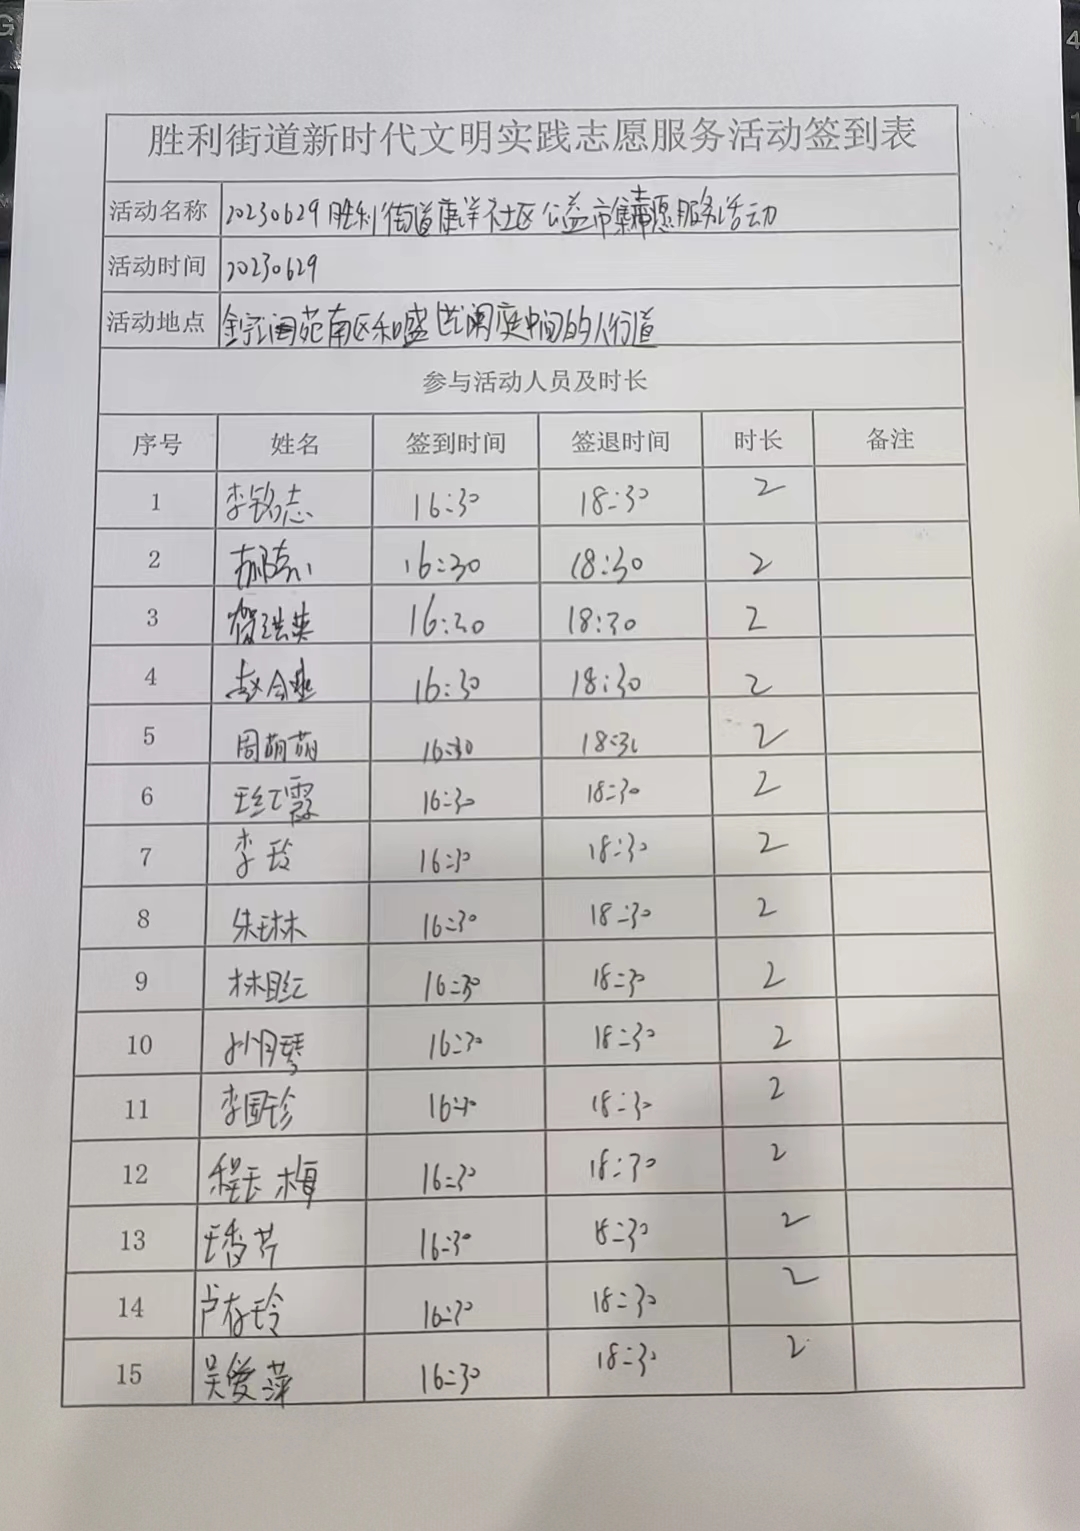 胜利街道新时代文明实践志愿服务活动签到表
活动名称 20230629胜利街道康洋社区公益市集志愿服务活动
活动时间 20230629
活动地点 南区和盛世阑庭中间的人行道
参与活动人员及时长
序号 姓名 签到时间 签退时间 时长 备注
1 李铭志 16:30 18:30 2
2 16:30 18:30 2
3 16:30 18:30 2
4 16:30 18:30 2
5 周萌萌 16:30 18:30 2
6 王红霞 16:30 18:30 2
7 李玲 16:30 18:30 2
8 朱琳 16:30 18:30 2
9 16:30 18:30 2
10 孙月琴 16:30 18:30 2
11 李国珍 16:30 18:30 2
12 程玉梅 16:30 18:30 2
13 王香芹 16:30 18:30 2
14 卢存玲 16:30 18:30 2
15 吴爱萍 16:30 18:30 2